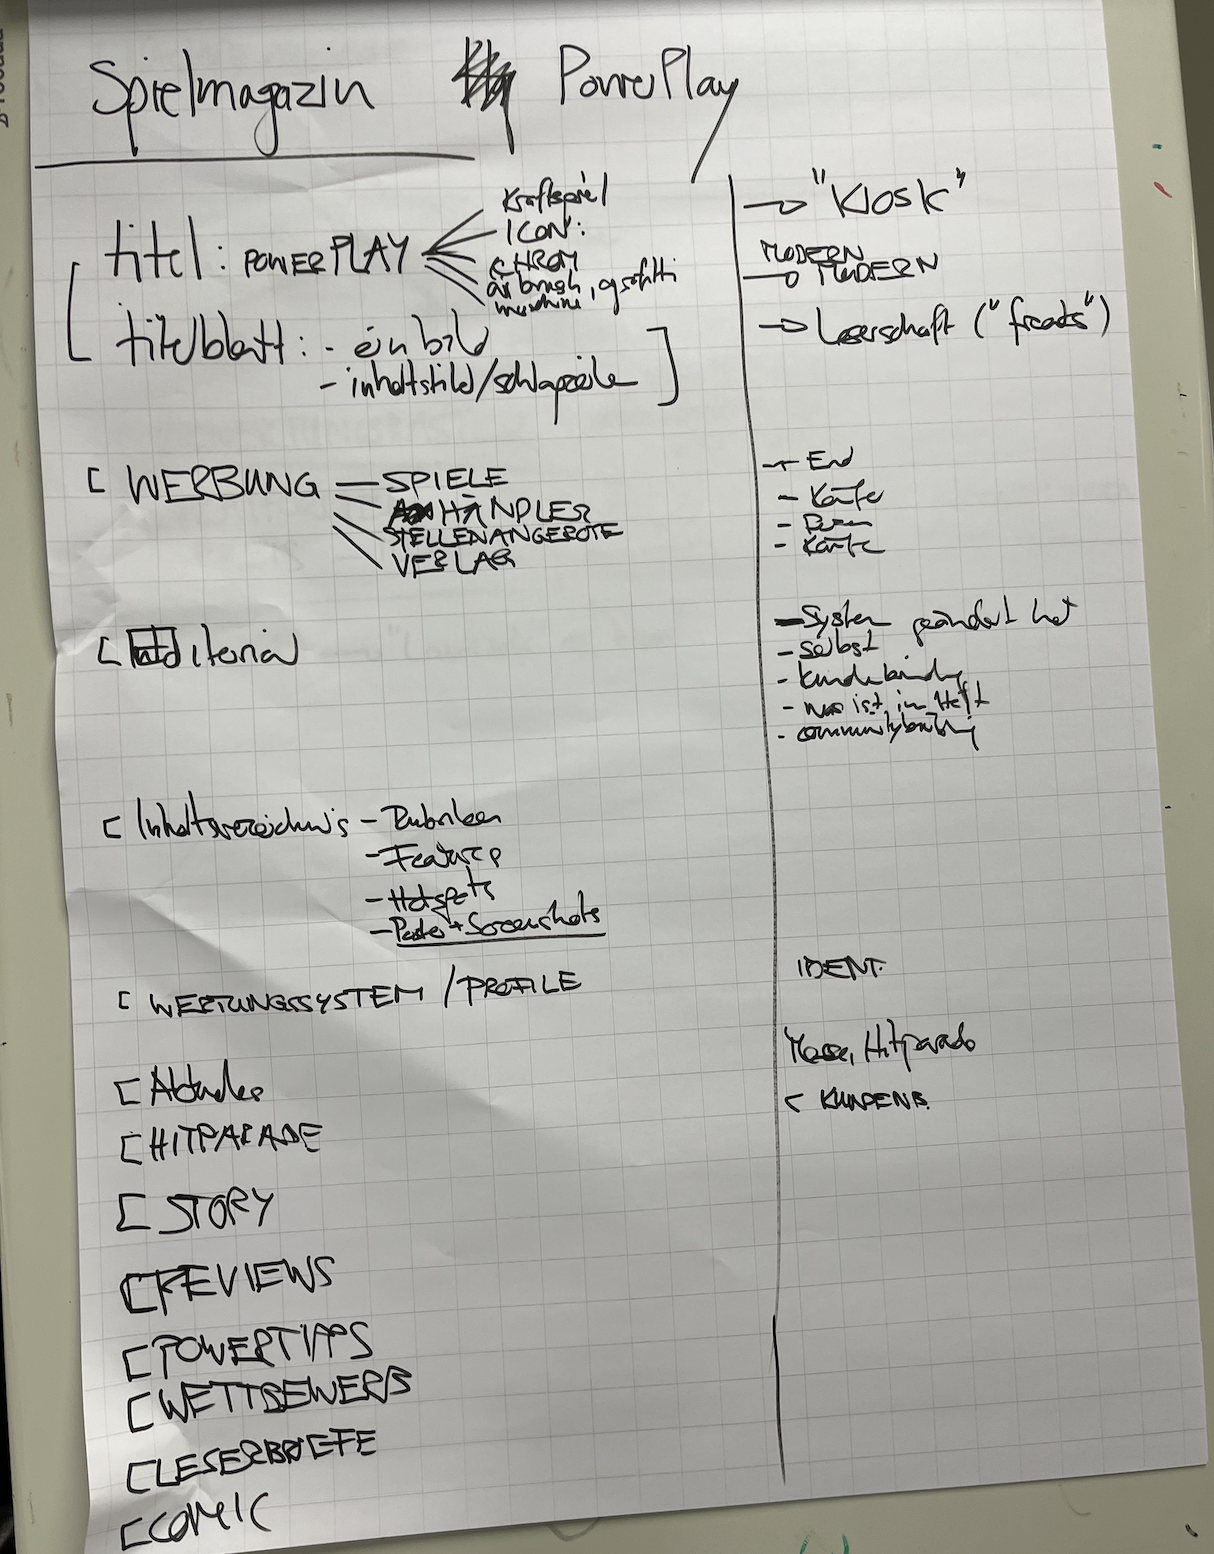 Spielmagazin PowerPlay
titel: POWERPLAY
Kraftspiel
ICON:
CHROM
airbrush, grafitti
maschine
titelblatt: - ein bild
- inhaltsbild/schlagzeile
→ "Kiosk"
MODERN
→ MODERN
→ Leserschaft ("freaks")
[ WERBUNG
SPIELE
HÄNDLER
STELLENANGEBOTE
VERLAG
→ End
- Käufer
- Käufer
[ Editorial
- System geändert hat
- selbst
- kundebindung
- was ist im Heft
- communitybuilding
[ Inhaltsverzeichnis - Rubriken
- Features
- Hotspots
- Poster + Screenshots
[ WERTUNGSSYSTEM / PROFILE
IDENT.
[ Aktuelles
Messe, Hitparade
[ HITPARADE
< KUNDENB.
[ STORY
[ REVIEWS
[ POWERTIPPS
[ WETTBEWERB
[ LESERBRIEFE
[ COMIC